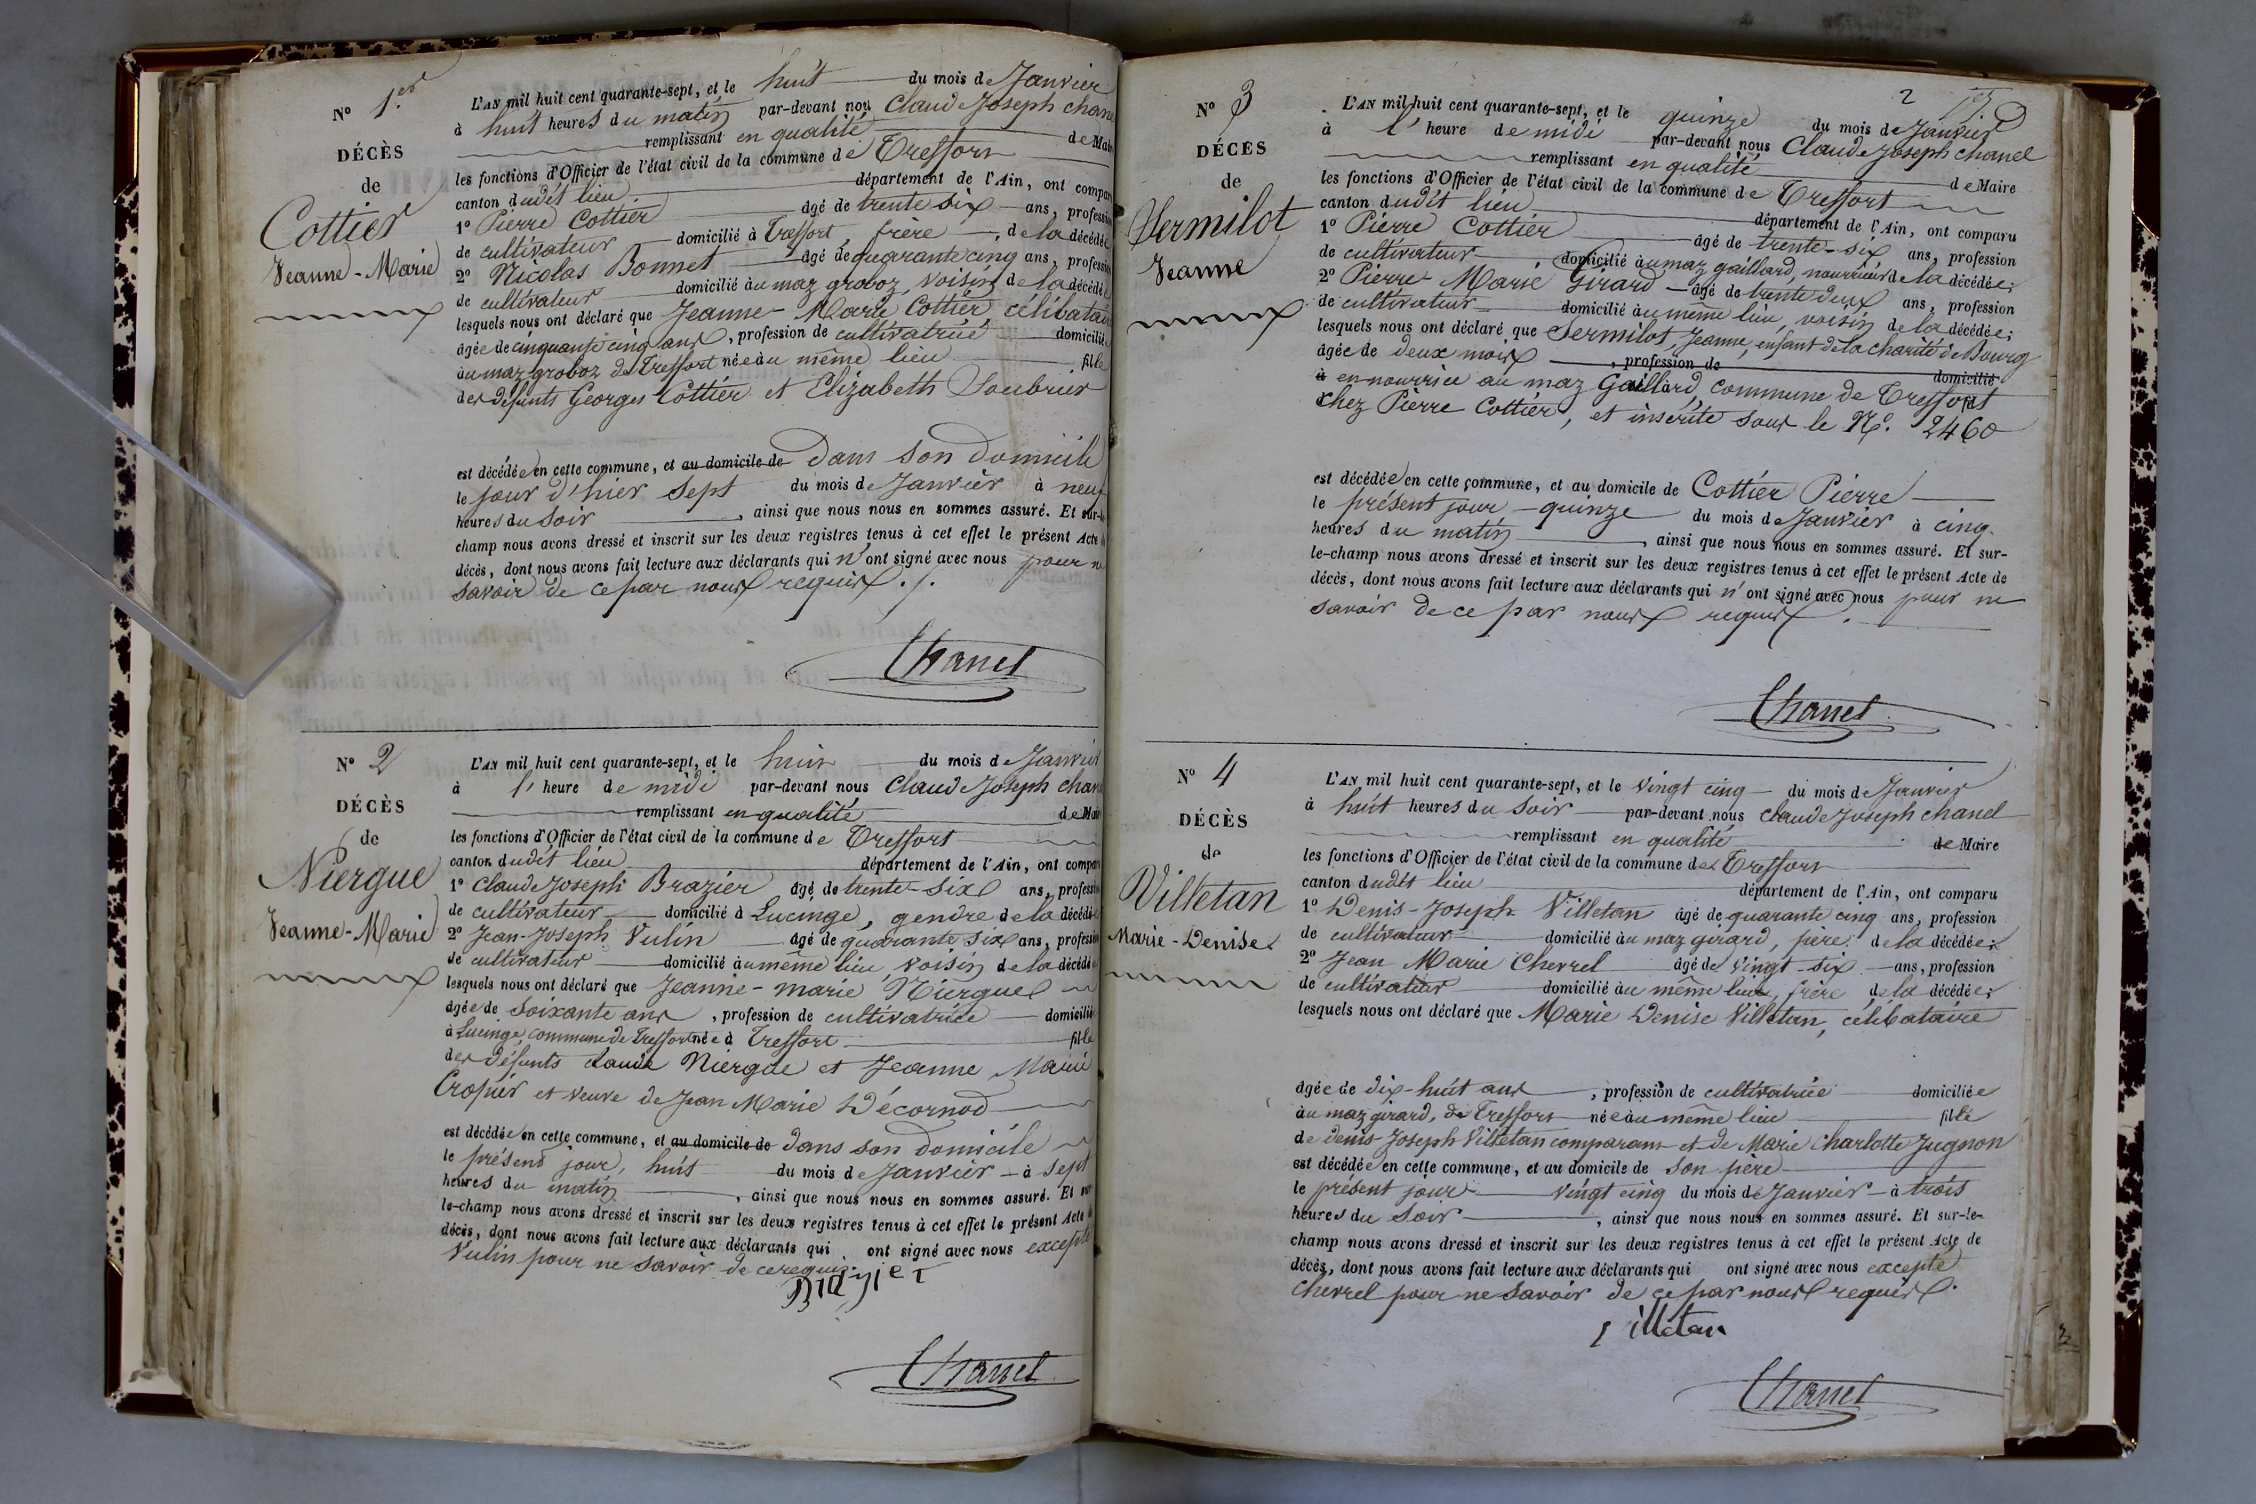 N° 1.er
DÉCÈS
de
Cottier
Jeanne-Marie
L'AN mil huit cent quarante-sept, et le huit du mois de Janvier
à huit heures du matin par-devant nou Claude Joseph chane
remplissant en qualité de Mai
les fonctions d'Officier de l'état civil de la commune de Treffort
canton dudit lieu département de l'Ain, ont compar
1° Pierre Cottier âgé de trente six ans, professio
de cultivateur domicilié à Treffort, frère de la décédée
2° Nicolas Bonnet âgé de quarante cinq ans, professio
de cultivateur domicilié au maz groboz voisin de la décédé
lesquels nous ont déclaré que Jeanne-Marie Cottier, célibatai
âgée de cinquante cinq ans, profession de cultivatrice domicilié
au maz groboz de Treffort née au même lieu fille
des défunts Georges Cottier et Elizabeth Soubrier
est décédée en cette commune, et au domicile de Dans son Domicile
le jour d'hier sept du mois de Janvier à neuf
heures du soir, ainsi que nous nous en sommes assuré. Et sur-le
champ nous avons dressé et inscrit sur les deux registres tenus à cet effet le présent Acte d
décès, dont nous avons fait lecture aux déclarants qui n'ont signé avec nous pour n
savoir de ce par nous requis ./.
Chanel
N° 2
DÉCÈS
de
Niergue
Jeanne-Marie
L'AN mil huit cent quarante-sept, et le huit du mois de Janvier
à l'heure de midi par-devant nous Claude Joseph chan
remplissant en qualité de Mai
les fonctions d'Officier de l'état civil de la commune de Treffort
canton dudit lieu département de l'Ain, ont compar
1° Claude Joseph Brazier âgé de trente-six ans, professio
de cultivateur domicilié à Lucinge, gendre de la décédé
2° Jean-Joseph Vulin âgé de quarante six ans, professio
de cultivateur domicilié au même lieu voisin de la décédé
lesquels nous ont déclaré que Jeanne-marie Niergue
âgée de soixante ans, profession de cultivatrice domicilié
à Lucinge, commune de Treffort née à Treffort fille
des défunts Claude Niergue et Jeanne Marie
Cropier et veuve de Jean Marie Décornod
est décédée en cette commune, et au domicile de dans son domicile
le présent jour, huit du mois de Janvier à sept
heures du matin, ainsi que nous nous en sommes assuré. Et sur
le-champ nous avons dressé et inscrit sur les deux registres tenus à cet effet le présent Acte d
décès, dont nous avons fait lecture aux déclarants qui ont signé avec nous excepté
Vulin pour ne savoir de ce requis.
Brazier
Chanel
2
N° 3
DÉCÈS
de
Sermilot
Jeanne
L'AN mil huit cent quarante-sept, et le quinze du mois de Janvier
à l'heure de midi par-devant nous Claude Joseph chanel
remplissant en qualité de Maire
les fonctions d'Officier de l'état civil de la commune de Treffort
canton dudit lieu département de l'Ain, ont comparu
1° Pierre Cottier âgé de trente-six ans, profession
de cultivateur domicilié au maz gaillard, nourricier de la décédée;
2° Pierre-Marie Girard âgé de trente deux ans, profession
de cultivateur domicilié au même lieu, voisin de la décédée;
lesquels nous ont déclaré que Sermilot, Jeanne, enfant de la charité de Bourg
âgée de deux mois, profession de domicilié
à en nourrice au maz Gaillard, commune de Treffort
chez Pierre Cottier, et inscrite sous le N°. 2460
est décédée en cette commune, et au domicile de Cottier Pierre
le présent jour quinze du mois de Janvier à cinq
heures du matin, ainsi que nous nous en sommes assuré. Et sur-
le-champ nous avons dressé et inscrit sur les deux registres tenus à cet effet le présent Acte de
décès, dont nous avons fait lecture aux déclarants qui n'ont signé avec nous pour ne
savoir de ce par nous requis.
Chanel
N° 4
DÉCÈS
de
Villetan
Marie-Denise
L'AN mil huit cent quarante-sept, et le vingt cinq du mois de Janvier
à huit heures du soir par-devant nous Claude Joseph chanel
remplissant en qualité de Maire
les fonctions d'Officier de l'état civil de la commune de Treffort
canton dudit lieu département de l'Ain, ont comparu
1° Denis-Joseph Villetan âgé de quarante cinq ans, profession
de cultivateur domicilié au maz girard, père de la décédée;
2° Jean Marie Chevrel âgé de vingt-six ans, profession
de cultivateur domicilié au même lieu, frère de la décédée;
lesquels nous ont déclaré que Marie Denise Villetan, célibataire
âgée de dix-huit ans, profession de cultivatrice domiciliée
au maz girard, de Treffort née au même lieu fille
de Denis-Joseph Villetan comparant et de Marie Charlotte Jugnon
est décédée en cette commune, et au domicile de son père
le présent jour vingt cinq du mois de Janvier à trois
heures du soir, ainsi que nous nous en sommes assuré. Et sur-le-
champ nous avons dressé et inscrit sur les deux registres tenus à cet effet le présent Acte de
décès, dont nous avons fait lecture aux déclarants qui ont signé avec nous excepté
Chevrel pour ne savoir de ce par nous requis.
Villetan
Chanel